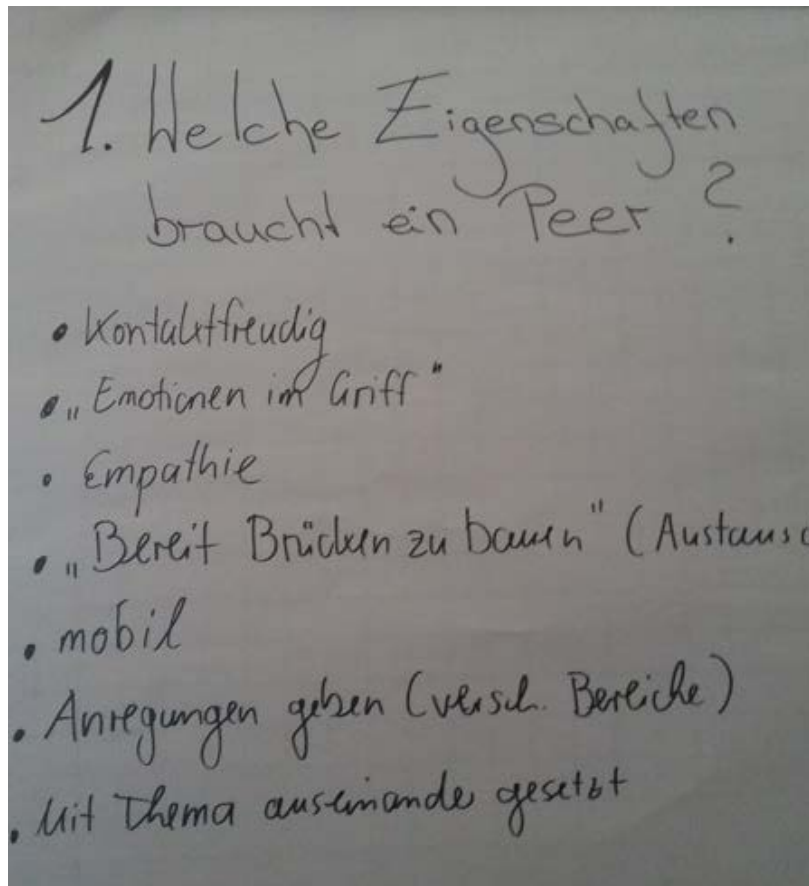 1. Welche Eigenschaften
braucht ein Peer ?
• Kontaktfreudig
• „Emotionen im Griff"
• Empathie
• „Bereit Brücken zu bauen" (Austausc
• mobil
• Anregungen geben (versch. Bereiche)
• Mit Thema auseinander gesetzt